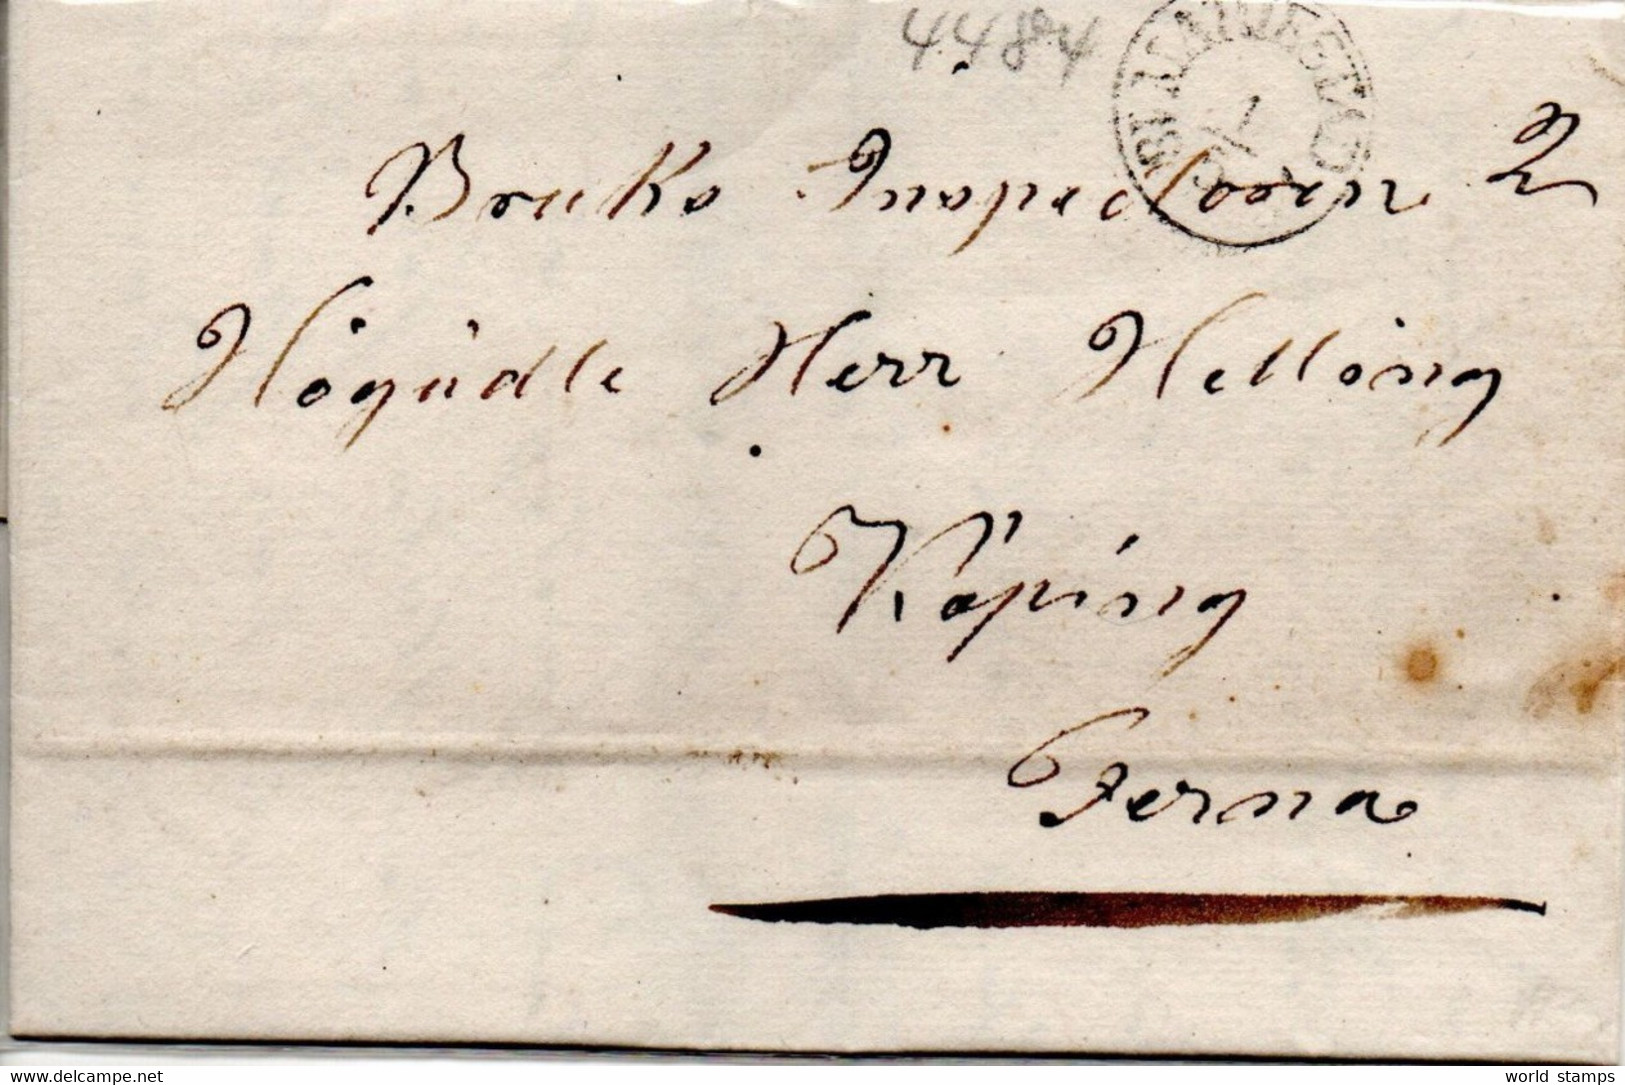 4484
Bruks Inspectoren
Högädle Herr Helling
Köping
Ferna
www.delcampe.net
world stamps